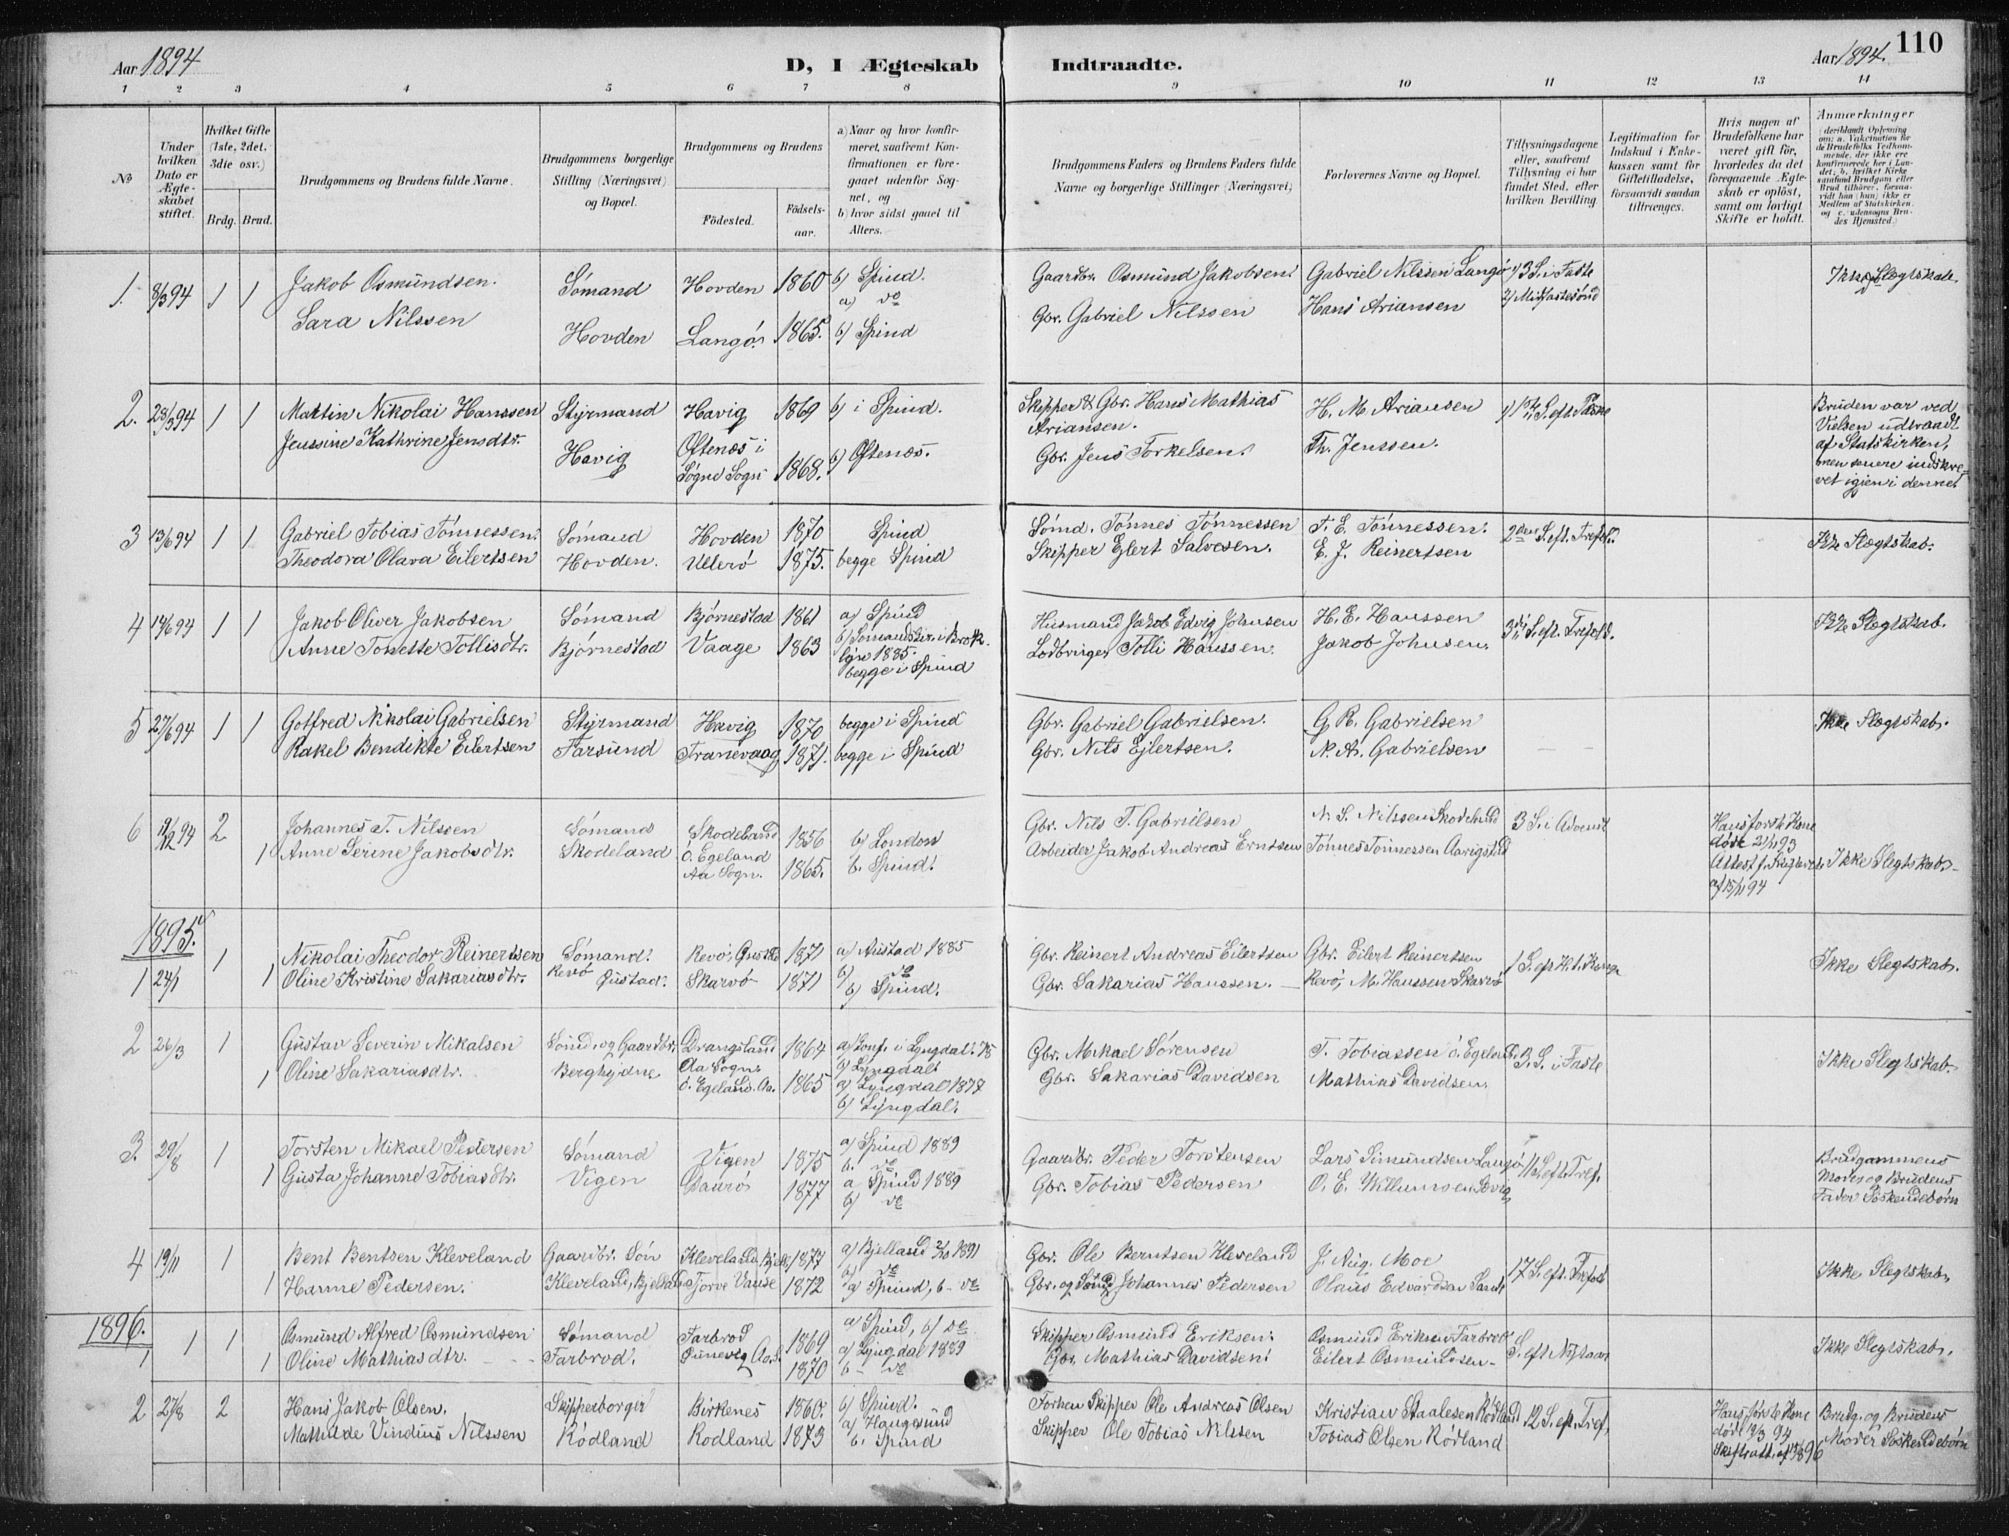 Aar 1894
D, I Ægteskab
Indtraadte.
Aar 1894.
110
1 2 3 4 5 6 7 8 9 10 11 12 13 14
No
Under hvilken Dato er Ægteskabet stiftet.
Hvilket Gifte (1ste, 2det, 3die osv.)
Brdg. Brud.
Brudgommens og Brudens fulde Navne.
Brudgommens borgerlige Stilling (Næringsvei) og Bopæl.
Brudgommens og Brudens
Födested. Födselsaar.
a) Naar og hvor konfirmeret, saafremt Konfirmationen er foregaaet udenfor Sognet, og
b) hvor sidst gaaet til Alters.
Brudgommens Faders og Brudens Faders fulde Navne og borgerlige Stillinger (Næringsvei)
Forlovernes Navne og Bopæl.
Tillysningsdagene eller, saafremt Tillysning ei har fundet Sted, efter hvilken Bevilling
Legitimation for Indskud i Enkekassen samt for Giftetilladelse, forsaavidt saadan tiltrænges.
Hvis nogen af Brudefolkene har været gift för, hvorledes da det foregaaende Ægteskab er oplöst, samt om lovligt Skifte er holdt.
Anmærkninger
(deriblandt Oplysning om: a. Vakcination for de Brudefolks Vedkommende, der ikke ere konfirmerede her i Landet; b. hvilket Kirkesamfund Brudgom eller Brud tilhörer, forsaavidt han (hun) ikke er Medlem af Statskirken, og c. udensogns Brudes Hjemsted.)
1. 8/3 94 1 1 Jakob Osmundsen. Sömand Hovden 1860 b) Spind. Gaardbr. Osmund Jakobsen. Gabriel Nilssen Langö 1) 3 S. i Faste Ikke Slegtskab.
a) do 2) Midfastesönd
Sara Nilssen Hovden Langö. 1865. b) Spind Gbr. Gabriel Nilssen Hans Ariansen
2. 28/3 94 1 1 Martin Nikolai Hanssen Styrmand Havig 1869 b) i Spind. Skipper & Gbr. Hans Mathias Ariansen. H. M. Ariansen Bruden var ved Vielsen udtraadt af Statskirken, men senere indskrevet igjen i denne
Jenssine Kathrine Jensdtr. Havig Öftenæs i Sögne Sogn 1868. b) Öftenæs. Gbr. Jens Torkelsen. Th. Jenssen.
3 13/6 94 1 1 Gabriel Tobias Tönnessen. Sömand Hovden 1870 Spind Sömd. Tönnes Tönnessen T. E. Tönnessen. 2den S. eft. Trefol. Ikke Slegtskab.
Theodora Olava Eilertsen Hovden. Ullerö 1875. begge Spind Skipper Ejlert Salvesen. E. J. Reinertsen
4 14/6 94 1 1 Jakob Oliver Jakobsen Sömand Björnestad 1861 a) Spind Husmand Jakob Edvig Johnsen H. E. Hanssen 3die S. eft. Trefold. Ikke Slegtskab.
b) Sömandskir. i Brooklyn 1885.
Anne Tonette Tollisdtr. Björnestad Vaage 1863 begge i Spind Lodbringer Tolli Hanssen. Jakob Johnsen.
5 27/6 94 1 1 Gotfred Nikolai Gabrielsen Styrmand Havig 1870 begge i Spind Gbr. Gabriel Gabrielsen. G. R. Gabrielsen Ikke Slegtskab.
Rakel Bendikte Eilertsen Farsund Tranevaag 1871. begge i Spind Gbr. Nils Ejlertsen. N. A. Gabrielsen — —
6 19/12 94 2 Johannes T. Nilssen Sömand Skodeland 1856 b) London Gbr. Nils T. Gabrielsen N. S. Nilssen Skodeland 3 S. i Advent Hans forste Kone döde 21/1 93
1 Anne Serine Jakobsdtr. Skodeland Ö. Egeland Aa Sogn. 1865. b. Spind. Arbeider Jakob Andreas Erntsen Tönnes Tönnessen Aarigstad Attest f. Skifteret. af 15/11 94 Ikke Slegtskab.
1895.
1 24/1 1 Nikolai Theodor Reinertsen Sömand. Revö, Qustad 1871 a) Austad 1885 Gbr. Reinert Andreas Eilertsen Gbr. Eilert Reinertsen 1 S. eft H. 3 Konge Ikke Slegtskab.
b) do
1 Oline Kristine Sakariasdtr. Revö Qustad. Skarvö 1871 b) Spind. Gbr. Sakarias Hanssen. Revö, M. Hanssen Skarvö
2 26/3 1 Gustav Severin Mikalsen Sömd. og Gaardbr. Drangsland Aa Sogn 1864 a) Konf. i Lyngdal. 78 Gbr. Mikael Sörensen T. Tobiassen ö. Egeland. 3. S. i Faste Ikke Slegtskab.
b) Lyngdal
1 Oline Sakariasdtr. Berghydne ö. Egeland. Aa. 1865 a) Lyngdal 1877 Gbr. Sakarias Davidsen Mathias Davidsen.
b) Lyngdal.
3. 29/8 1 Torsten Mikael Pedersen Sömand Vigen 1875 a) Spind 1889 Gaardbr. Peder Torstensen Lars Simundsen Langö 11 S. eft. Tref. Brudgommens Moder og Brudens Fader Söskendebörn
b. do
1 Gusta Johanne Tobiasdtr. Vigen Daurö 1877 a Spind 1889 Gbr. Tobias Pedersen O. E. Willumsen Sevig
b) do
4 19/11 1 Bent Bentsen Kleveland Gaardbr. Sön Kleveland, Bjell. 1877 a) Bjelland 2/10 1891 Gbr. Ole Berntsen Kleveland J. Aug. Moe 17 S. eft. Trefold Ikke Slegtskab.
b) do
1 Hanne Pedersen. Kleveland, Bjelland Tjorve Vanse 1872 a Spind, b - do Gbr. og Sömd Johannes Pedersen Olaus Edvardsen Sande
1896.
1 1 1 Osmund Alfred Osmundsen Sömand Farbrod 1869 a) Spind, b) do Skipper Osmund Eriksen. Osmund Eriksen Farbrod S. eft Nytaar Ikke Slegtskab.
1 Oline Mathiasdtr. Farbrod. Qunevig Aa. S. 1870 a) Lyngdal 1889 Gbr. Mathias Davidsen. Eilert Osmundsen
b - do
2 27/8 2 Hans Jakob Olsen. Skipperborger Birkenes 1860. b) Spind. Forhen Skipper Ole Andreas Olsen Kristian Staalesen Rödland 12 S. eft. Tref. Hans förste Kone döde 12/3 94 Brudg. og Brudens Moder Söskendebörn
Mathilde Vindius Nilssen Rödland Rödland 1873 a) Haugesund Skipper Ole Tobias Nilssen Tobias Olsen Rödland Skifteatt. af 13/8 96
b. Spind